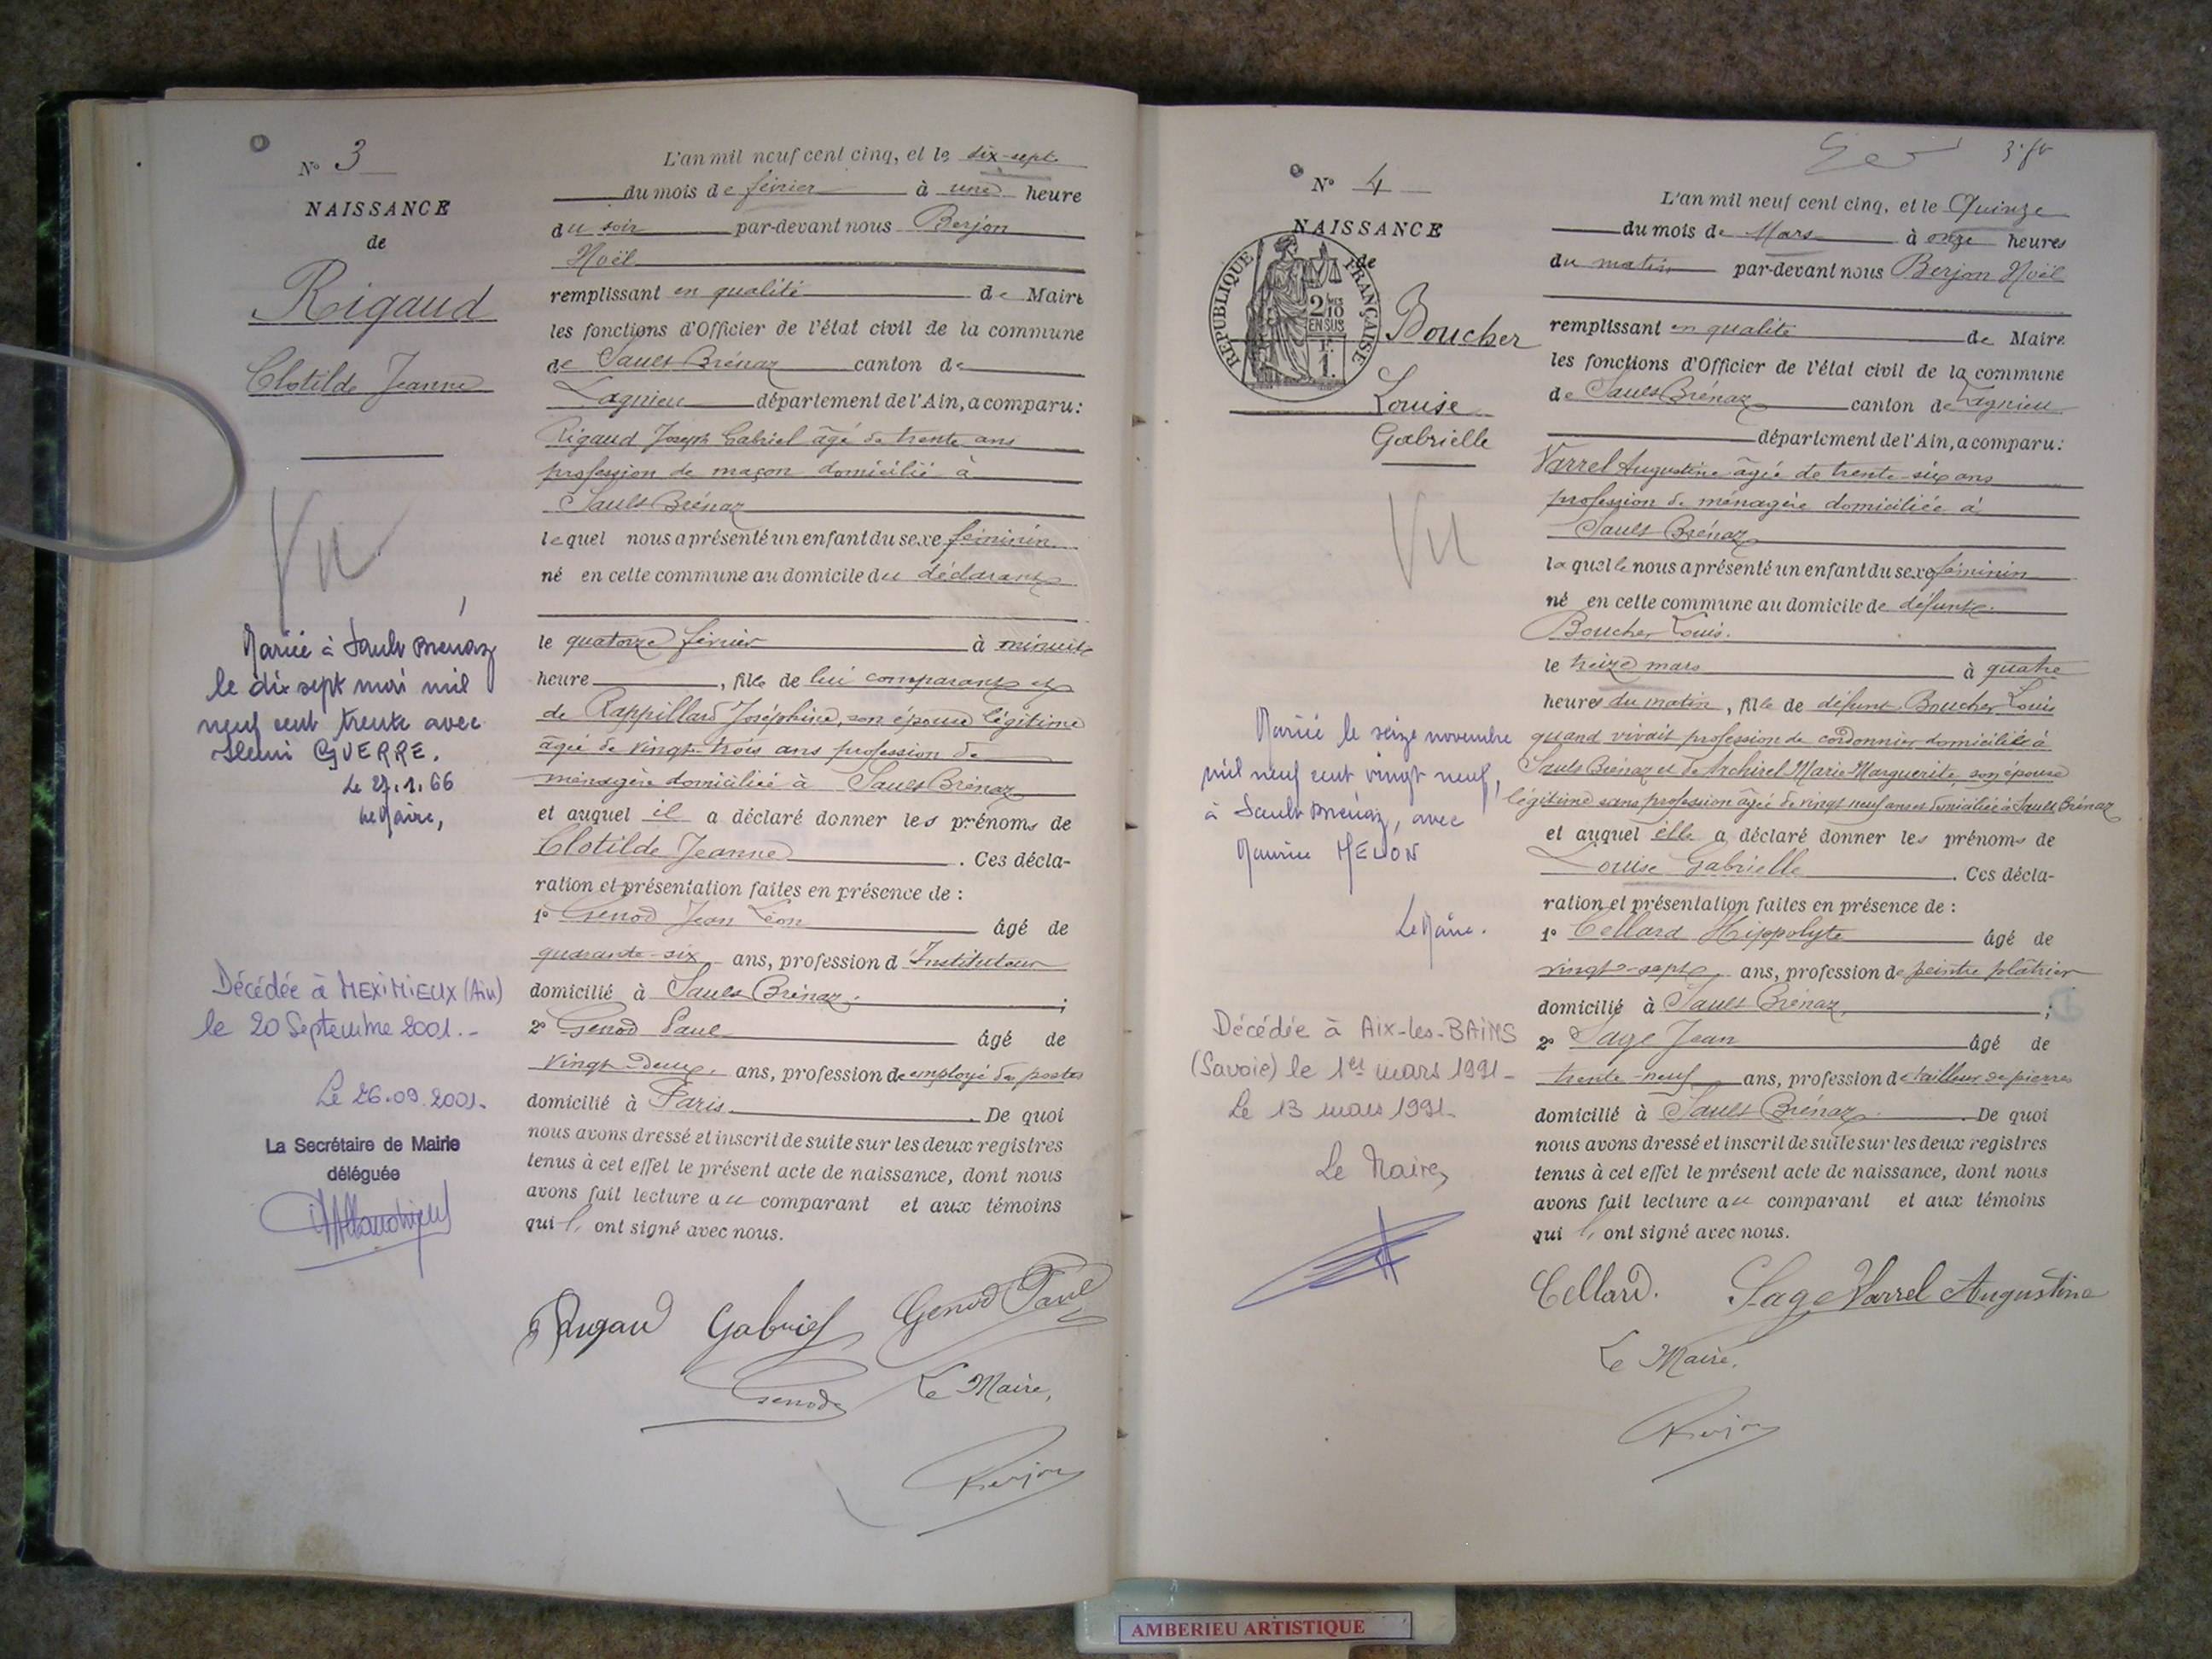 N° 3
NAISSANCE
de
Rigaud
Clotilde Jeanne
Vu
Mariée à Sault Brénaz
le dix sept mai mil
neuf cent trente avec
Henri GUERRE.
Le 27.1.66
Le Maire,
Décédée à MEXIMIEUX (Ain)
le 20 Septembre 2001.-
Le 26.09.2001.
La Secrétaire de Mairie
déléguée
L'an mil neuf cent cinq, et le dix-sept
du mois de février à une heure
du soir par-devant nous Berjon
Noël
remplissant en qualité de Maire
les fonctions d'Officier de l'état civil de la commune
de Sault Brénaz canton de
Lagnieu département de l'Ain, a comparu:
Rigaud Joseph Gabriel âgé de trente ans
profession de maçon domicilié à
Sault Brénaz
lequel nous a présenté un enfant du sexe féminin
né en cette commune au domicile du déclarant
le quatorze février à minuit
heure , fille de lui comparant et
de Rappillard Joséphine, son épouse légitime
âgée de vingt-trois ans profession de
ménagère domiciliée à Sault Brénaz
et auquel il a déclaré donner les prénoms de
Clotilde Jeanne . Ces décla-
ration et présentation faites en présence de :
1° Genod Jean Léon âgé de
quarante-six ans, profession d'Instituteur
domicilié à Sault Brénaz ;
2° Genod Paul âgé de
vingt-deux ans, profession de employé des postes
domicilié à Paris. De quoi
nous avons dressé et inscrit de suite sur les deux registres
tenus à cet effet le présent acte de naissance, dont nous
avons fait lecture au comparant et aux témoins
qui l' ont signé avec nous.
Rigaud Gabriel Genod Paul
Genod Le Maire,
Berjon
N° 4
NAISSANCE
de
RÉPUBLIQUE FRANÇAISE
2/10
EN SUS
1.
Boucher
Louise
Gabrielle
Vu
Mariée le seize novembre
mil neuf cent vingt neuf,
à Sault Brénaz, avec
Maurice
Le Maire.
Décédée à Aix-les-BAINS
(Savoie) le 1er mars 1991-
Le 13 mars 1991-
Le Maire,
L'an mil neuf cent cinq, et le Quinze
du mois de Mars à onze heures
du matin par-devant nous Berjon Noël
remplissant en qualité de Maire
les fonctions d'Officier de l'état civil de la commune
de Sault Brénaz canton de Lagnieu
département de l'Ain, a comparu:
Varrel Augustine âgée de trente-six ans
profession de ménagère domiciliée à
Sault Brénaz
laquelle nous a présenté un enfant du sexe féminin
né en cette commune au domicile de défunt
Boucher Louis.
le treize mars à quatre
heures du matin, fille de défunt Boucher Louis
quand vivait profession de cordonnier domicilié à
Sault Brénaz et de Archirel Marie Marguerite, son épouse
légitime sans profession âgée de vingt neuf ans et domiciliée à Sault Brénaz
et auquel elle a déclaré donner les prénoms de
Louise Gabrielle . Ces décla-
ration et présentation faites en présence de :
1° Cellard Hippolyte âgé de
vingt-sept ans, profession de peintre plâtrier
domicilié à Sault Brénaz, ;
2° Sage Jean âgé de
trente-neuf ans, profession de tailleur de pierres
domicilié à Sault Brénaz. De quoi
nous avons dressé et inscrit de suite sur les deux registres
tenus à cet effet le présent acte de naissance, dont nous
avons fait lecture au comparant et aux témoins
qui l' ont signé avec nous.
Cellard. Sage Varrel Augustine
Le Maire,
Berjon
AMBERIEU ARTISTIQUE